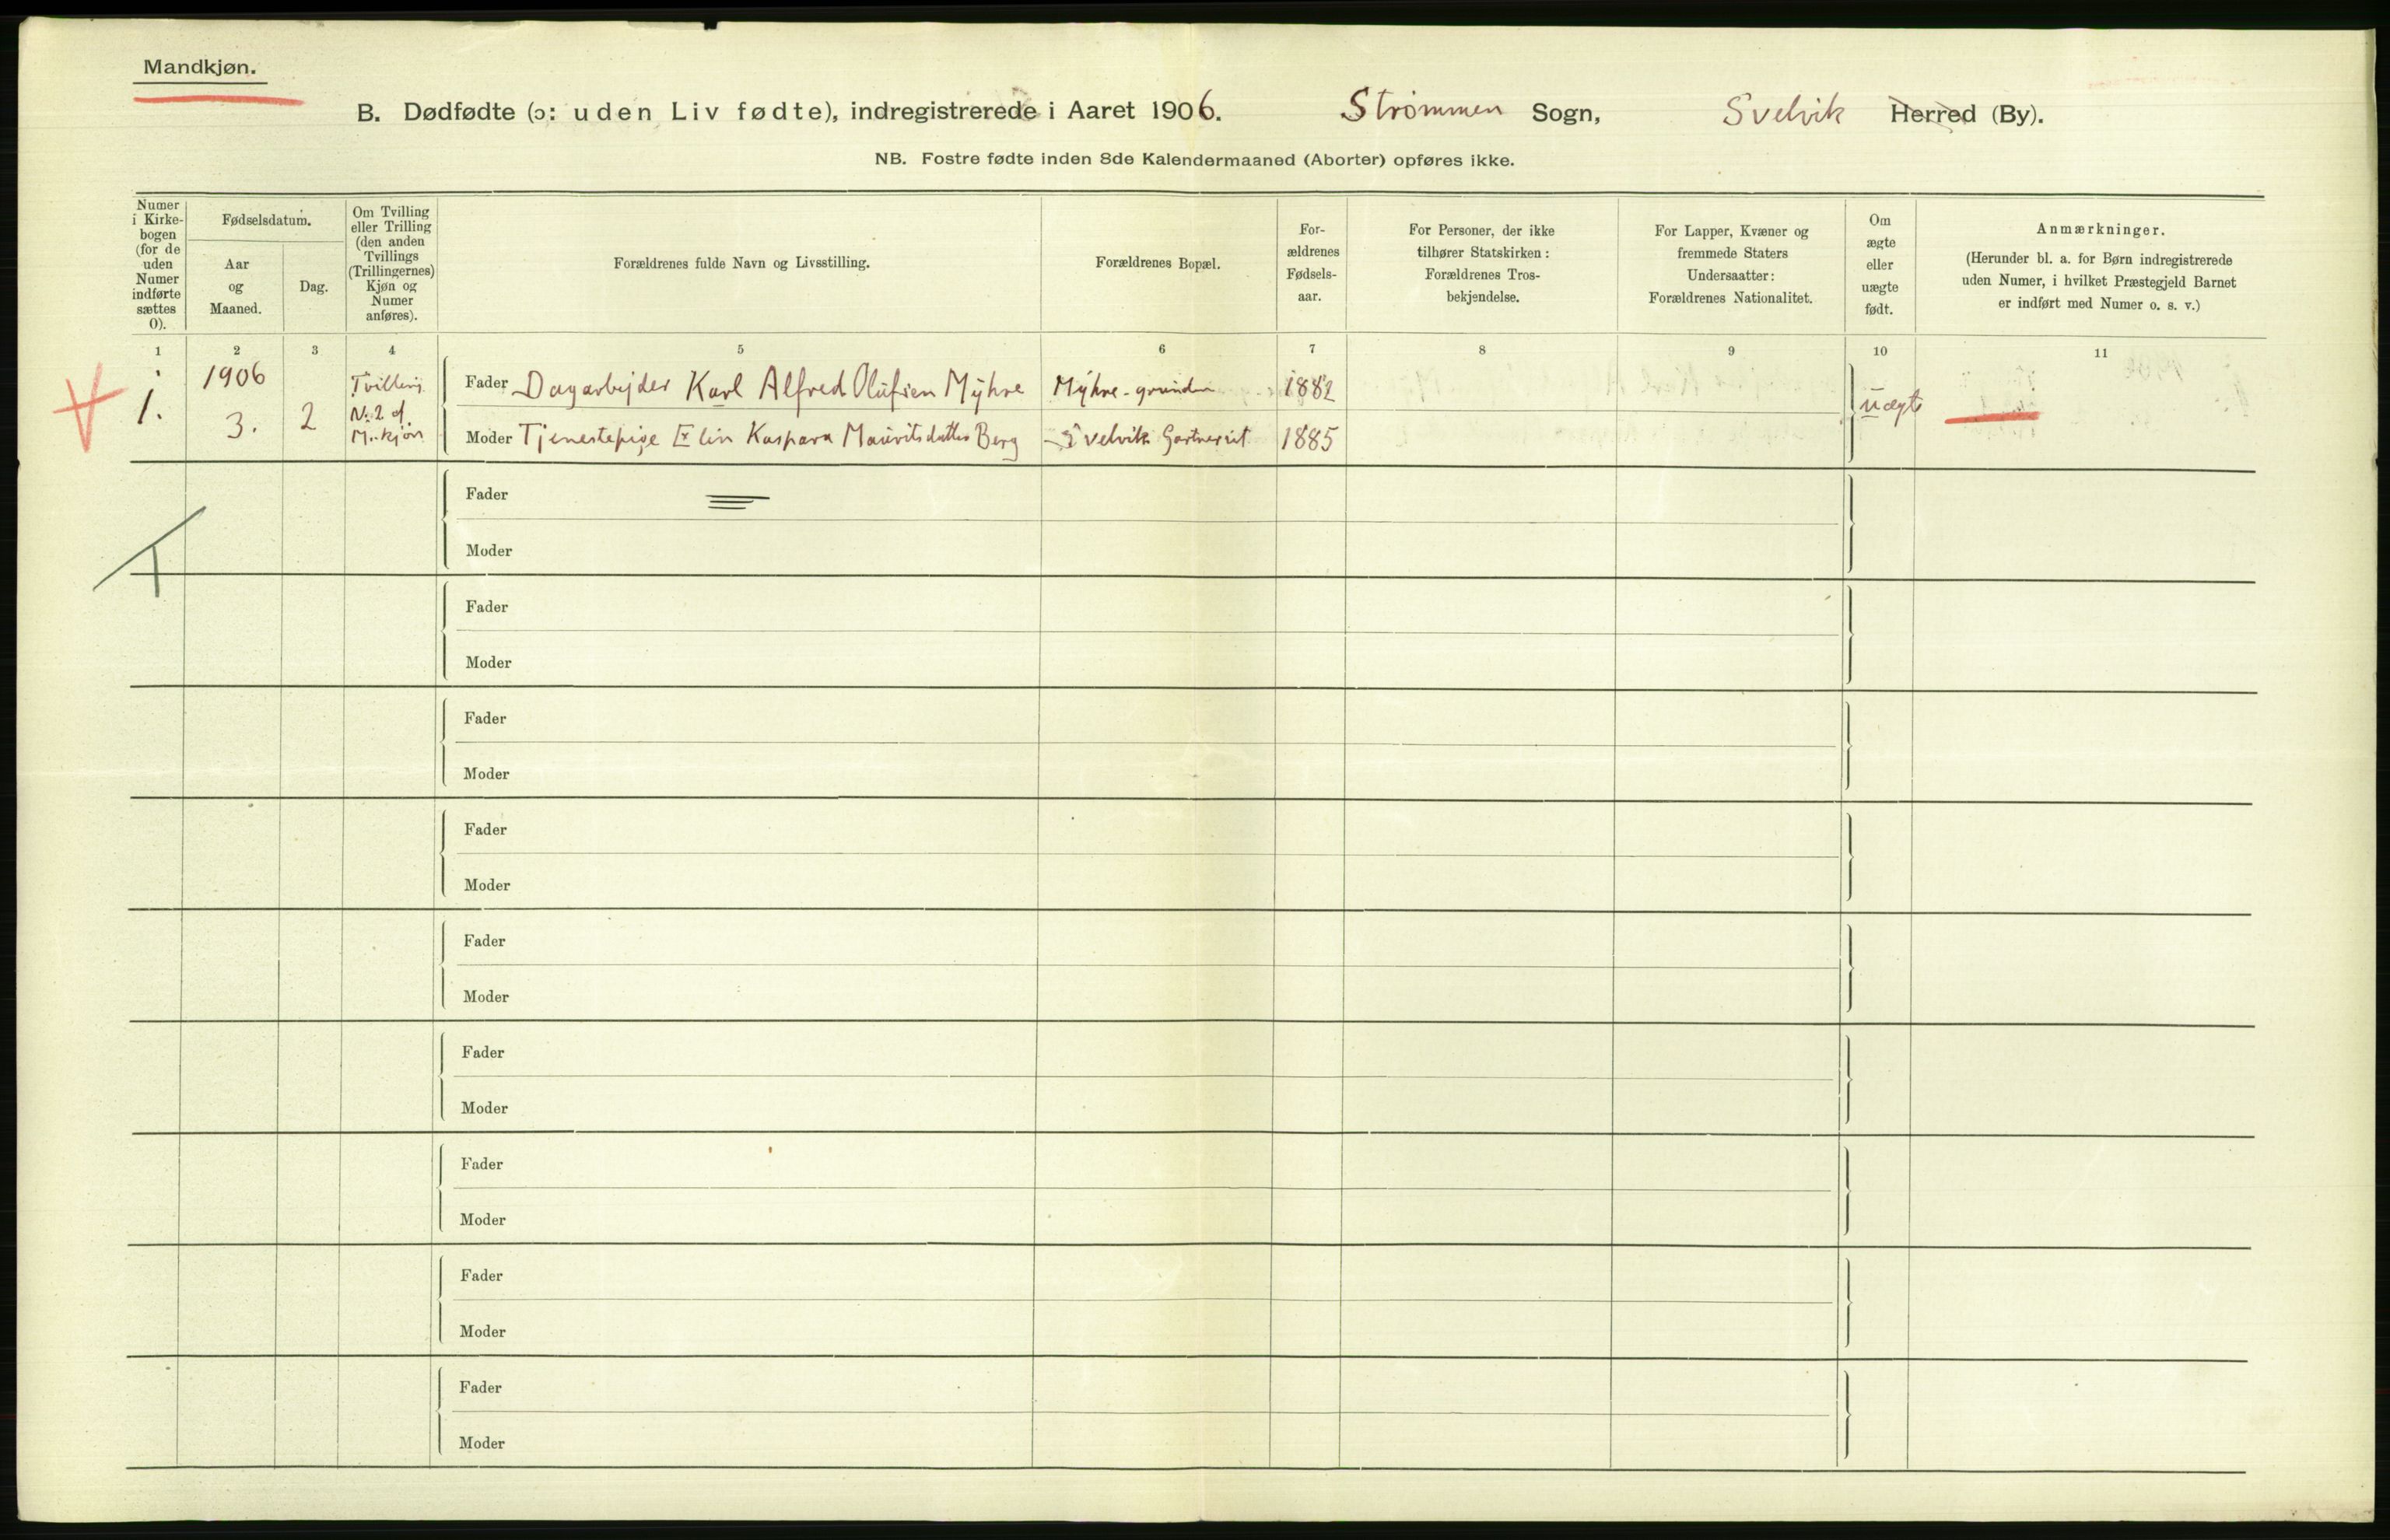 Mandkjøn.
B. Dødfødte (ɔ: uden Liv fødte), indregistrerede i Aaret 1906. Strømmen Sogn, Svelvik Herred (By).
NB. Fostre fødte inden 8de Kalendermaaned (Aborter) opføres ikke.
Numer
i Kirke-
bogen
(for de
uden
Numer
indførte
sættes
0).
Fødselsdatum.
Aar
og
Maaned.
Dag.
Om Tvilling
eller Trilling
(den anden
Tvillings
(Trillingernes)
Kjøn og
Numer
anføres).
Forældrenes fulde Navn og Livsstilling.
Forældrenes Bopæl.
For-
ældrenes
Fødsels-
aar.
For Personer, der ikke
tilhører Statskirken:
Forældrenes Tros-
bekjendelse.
For Lapper, Kvæner og
fremmede Staters
Undersaatter:
Forældrenes Nationalitet.
Om
ægte
eller
uægte
født.
Anmærkninger.
(Herunder bl. a. for Børn indregistrerede
uden Numer, i hvilket Præstegjeld Barnet
er indført med Numer o. s. v.)
1 2 3 4 5 6 7 8 9 10 11
1.
1906
3.
2
Tvilling
N: 2 af
M.kjøn
Fader Dagarbejder Karl Alfred Olufsen Myhre Myhre-grunden 1882
Moder Tjenestepige Elin Kaspara Mauritsdatter Berg Svelvik Gartneriet 1885
uægte
Fader
Moder
Fader
Moder
Fader
Moder
Fader
Moder
Fader
Moder
Fader
Moder
Fader
Moder
Fader
Moder
Fader
Moder